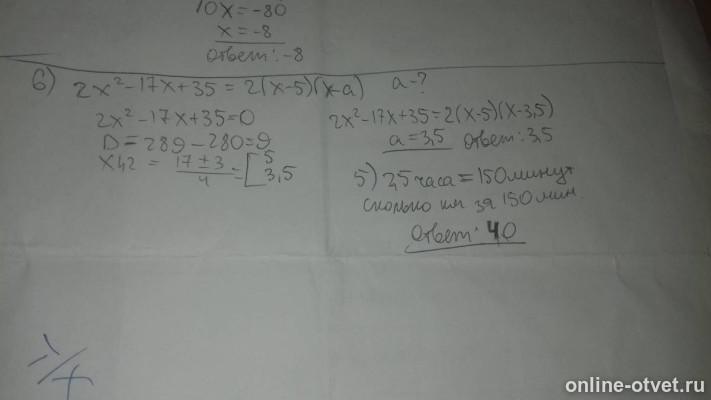 10x = -80
x = -8
Ответ: -8
6) 2x² - 17x + 35 = 2(x-5)(x-a) a-?
2x² - 17x + 35 = 0
D = 289 - 280 = 9
x1,2 = (17 ± 3)/4 = [5 3,5
2x² - 17x + 35 = 2(x-5)(x-3,5)
a = 3,5 Ответ: 3,5
5) 2,5 часа = 150 минут
сколько км за 150 мин.
Ответ: 40
online-otvet.ru